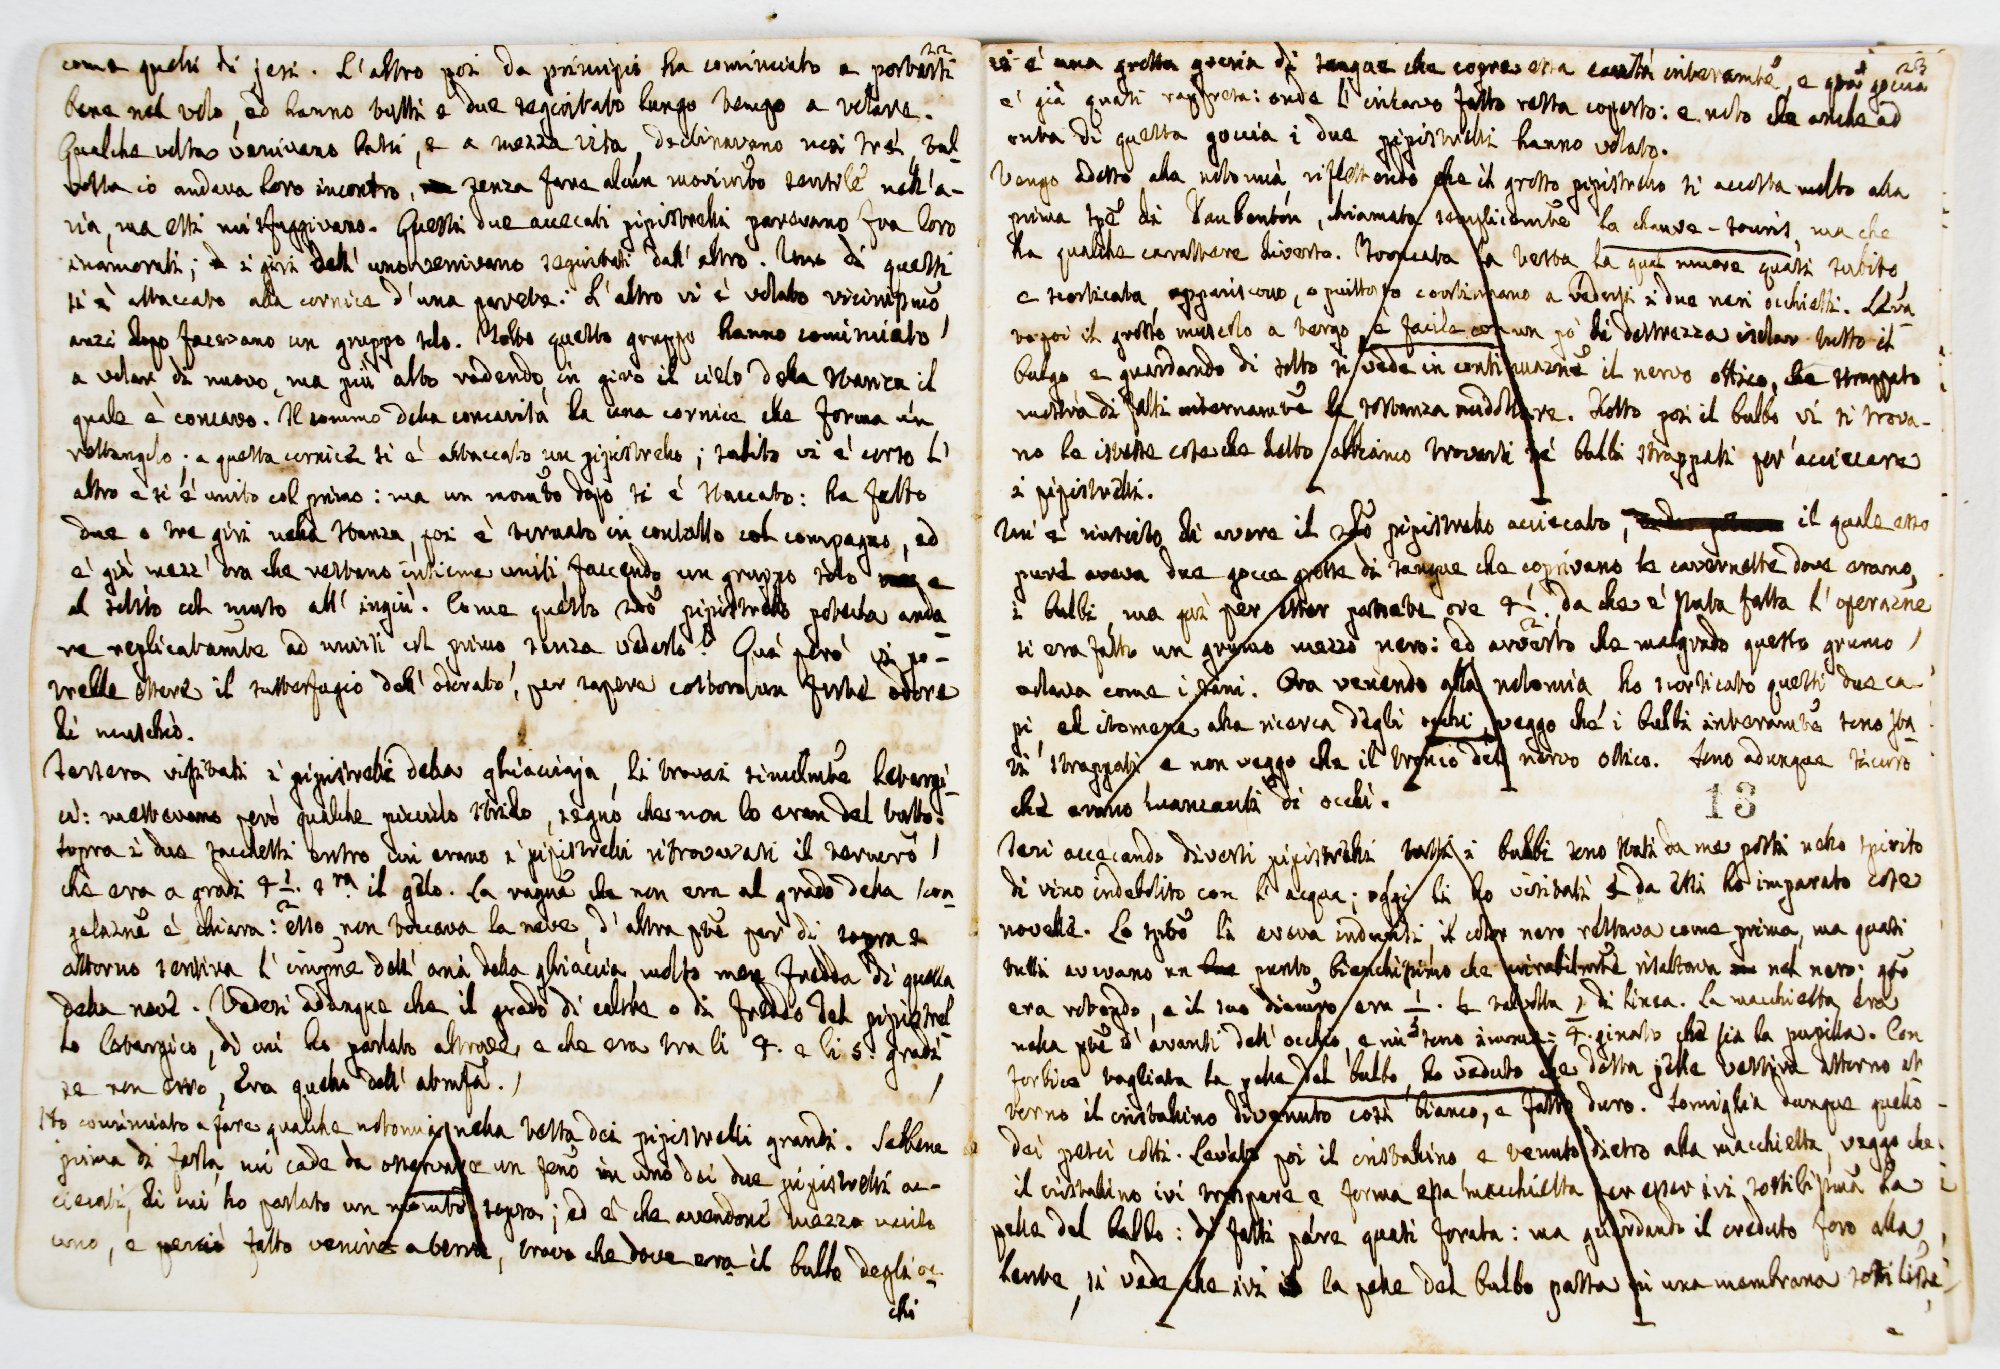 22
come quelli di jeri. L'altro poi da principio ha cominciato a portarsi
bene nel volo, ed hanno tutti e due seguitato lungo tempo a volare.
Qualche volta venivano bassi, e a mezza vita, declinavano nei tre, tal-
volta io andava loro incontro, senza fare alcun movimto sensile nell'a-
ria, ma essi mi sfuggivano. Questi due accecati pipistrelli parevano fra loro
inamorati; i giri dell'uno venivano seguitati dall'altro. Uno di questi
si è attaccato alla cornice d'una parete. L'altro vi è volato vicinissimo,
anzi dopo facevano un gruppo solo. Tolto questo gruppo hanno cominciato
a volar di nuovo, ma più alto radendo in giro il cielo della stanza il
quale è concavo. Il sommo della concavità ha una cornice che forma un
rettangolo; a questa cornice si è attaccato un pipistrello; subito vi è corso l'
altro e si è unito col primo: ma un momto dopo si è staccato: ha fatto
due o tre giri nella stanza, poi è tornato in contatto col compagno, ed
è già mezz'ora che restano insieme uniti, facendo un gruppo solo e
al solito col muso all'ingiù. Come questo 2do pipistrello poteva anda-
re replicatamte ad unirsi col primo, senza vederlo? Quà però vi po-
trebbe essere il sutterfugio dell'odorato, per sapere costoro un forte odore
di muschio.
Jersera visitati i pipistrelli della ghiacciaja, li trovai similmte letargi-
ci: mettevano però qualche picciolo strido, segno che non lo eran del tutto.
Sopra i due sacchetti entro cui erano i pipistrelli ritrovavasi il termro
che era a gradi 4 1/2. sra il gelo. La ragne che non era al grado della con-
gelazne è chiara: esso non toccava la neve, d'altra pte per di sopra e
attorno sentiva l'impne dell'aria della ghiaccia molto men fredda di quella
della neve. Vedesi adunque che il grado di calore o di freddo del pipistrel
lo letargico, di cui ho parlato altrove, e che era tra li 4. e li 5. gradi
se non erro, era quello dell'atmosfa.
Ho cominciato a fare qualche notomia nella testa dei pipistrelli grandi. Sebbene
prima di farla, mi cade da osservare un feno in uno dei due pipistrelli ac-
ciecati, di cui ho parlato un momto sopra; ed è che avendone mezzo ucciso
uno, e perciò fatto venire a terra, trovo che dove era il bulbo degli oc-
chi
23
vi è una grossa goccia di sangue che copre essa cavità interamte, e qta goccia
è già quasi rappresa: onde l'incavo fatto resta coperto: e noto che anche ad
onta di questa goccia i due pipistrelli hanno volato.
Vengo adesso alla notomia, riflettendo che il grosso pipistrello si accosta molto alla
prima spe di Daubenton, chiamata semplicemte la chauve-souris, ma che
ha qualche carattere diverso. Troncata la testa la qual muore quasi subito
e scorticata, appariscono, o piuttosto continuano a vedersi i due neri occhietti. Leva
to poi il grosso muscolo a tergo è facile con un pò di destrezza isolar tutto il
bulbo e guardando di sotto si vede in continuazne il nervo ottico, che strappato
mostra di fatti internamte la sostanza midollare. Sotto poi il bulbo vi si trova-
no le istesse cose che detto abbiamo trovarsi ne' bulbi strappati per acciecare
i pipistrelli.
Mi è riuscito di avere il 2do pipistrello acciecato, il quale esso
pure aveva due gocce grosse di sangue che coprivano le cavernette dove erano
i bulbi, ma già per esser passate ore 4 1/2. da che è stata fatta l'operazne
si era fatto un grumo mezzo nero: ed avverto che malgrado questo grumo
volava come i sani. Ora venendo alla notomia ho scorticato questi due ca
pi, ed itomene alla ricerca degli occhi veggo che i bulbi interamte sono sta-
ti strappati e non veggo che il tronco del nervo ottico. Sono adunque sicuro
che erano mancanti di occhi.
13
Jeri accecando diversi pipistrelli tutti i bulbi sono stati da me posti nello spirito
di vino indebolito con l'acqua; oggi li ho visitati e da essi ho imparato cose
novelle. Lo spto li aveva induriti, il color nero restava come prima, ma quasi
tutti avevano un punto bianchissimo che mirabilmte risaltava nel nero: qto
era rotondo, e il suo diamro era 1/3. e talvolta 1/4. di linea. La macchietta era
nella pte d'avanti dell'occhio, e mi sono immaginato che sia la pupilla. Con
forbice tagliata la pelle del bulbo, ho veduto che detta pelle vestiva attorno at
torno il cristallino divenuto così bianco, e fatto duro. Somiglia dunque quello
dei pesci cotti. Levato poi il cristallino, e venuto dietro alla macchietta, veggo che
il cristallino ivi traspare e forma essa macchietta per esser ivi sottilissima la
pelle del bulbo: di fatti pare quasi forata: ma guardando il creduto foro alla
lente, si vede che ivi la pelle del bulbo passa in una membrana sottilisse